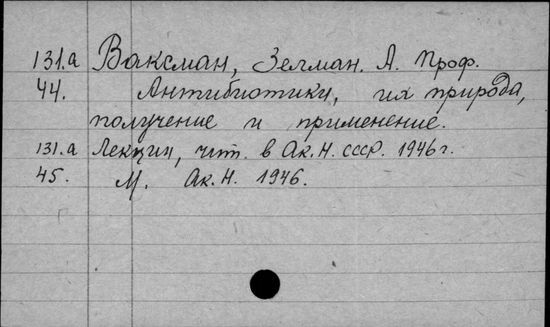 131.а Ваксман, Зелман. А. Проф.
44. Антибиотики, их природа,
получение и применение.
131.а Лекция, чит. в Ак.Н. СССР. 1946 г.
45. М. Ак.Н. 1946.